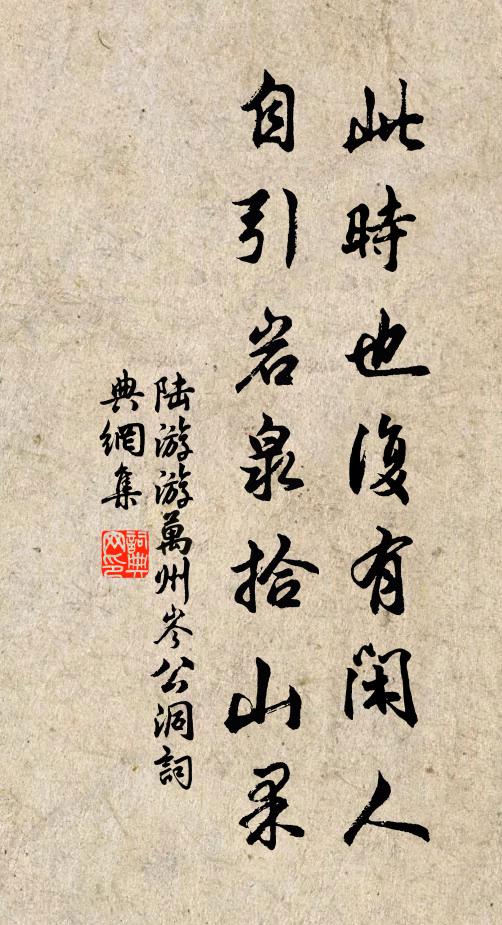 此時也復有閑人
自引岩泉拾山果
陆游游萬州岑公洞詞
典網集
詞典網印